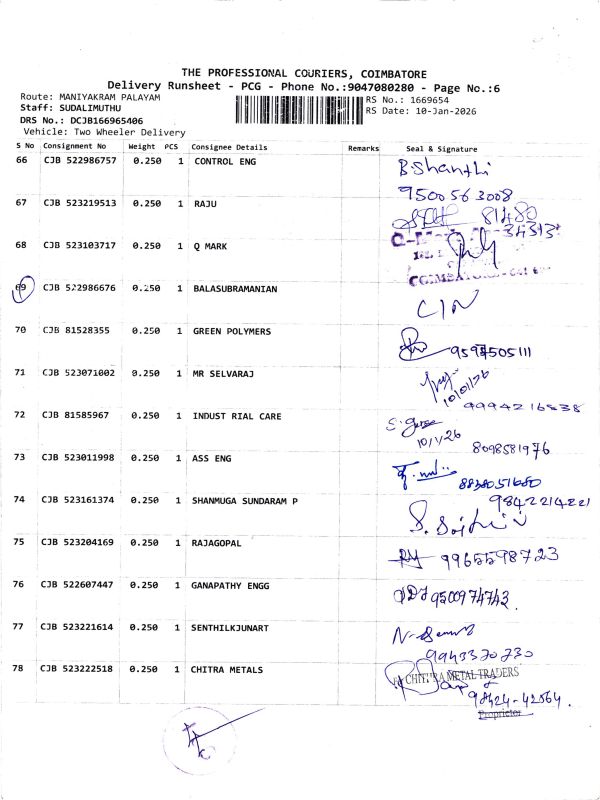 THE PROFESSIONAL COURIERS, COIMBATORE
Delivery Runsheet - PCG - Phone No.:9047080280 - Page No.:6
Route: MANIYAKRAM PALAYAM
Staff: SUDALIMUTHU
DRS No.: DCJB166965406
Vehicle: Two Wheeler Delivery
RS No.: 1669654
RS Date: 10-Jan-2026
S No Consignment No Weight PCS Consignee Details Remarks Seal & Signature
66 CJB 522986757 0.250 1 CONTROL ENG B.Shanthi
9500563008
67 CJB 523219513 0.250 1 RAJU 81480
34313
68 CJB 523103717 0.250 1 Q MARK
69 CJB 522986676 0.250 1 BALASUBRAMANIAN C/N
70 CJB 81528355 0.250 1 GREEN POLYMERS 9597505111
71 CJB 523071002 0.250 1 MR SELVARAJ 10/01/26
9994216538
72 CJB 81585967 0.250 1 INDUST RIAL CARE
10/1/26
8098581976
73 CJB 523011998 0.250 1 ASS ENG
8838051680
74 CJB 523161374 0.250 1 SHANMUGA SUNDARAM P 9842214221
75 CJB 523204169 0.250 1 RAJAGOPAL 9965598723
76 CJB 522607447 0.250 1 GANAPATHY ENGG 9500974743.
77 CJB 523221614 0.250 1 SENTHILKJUNART
9943370730
78 CJB 523222518 0.250 1 CHITRA METALS CHITRA METAL TRADERS
98424-42564.
Proprietor